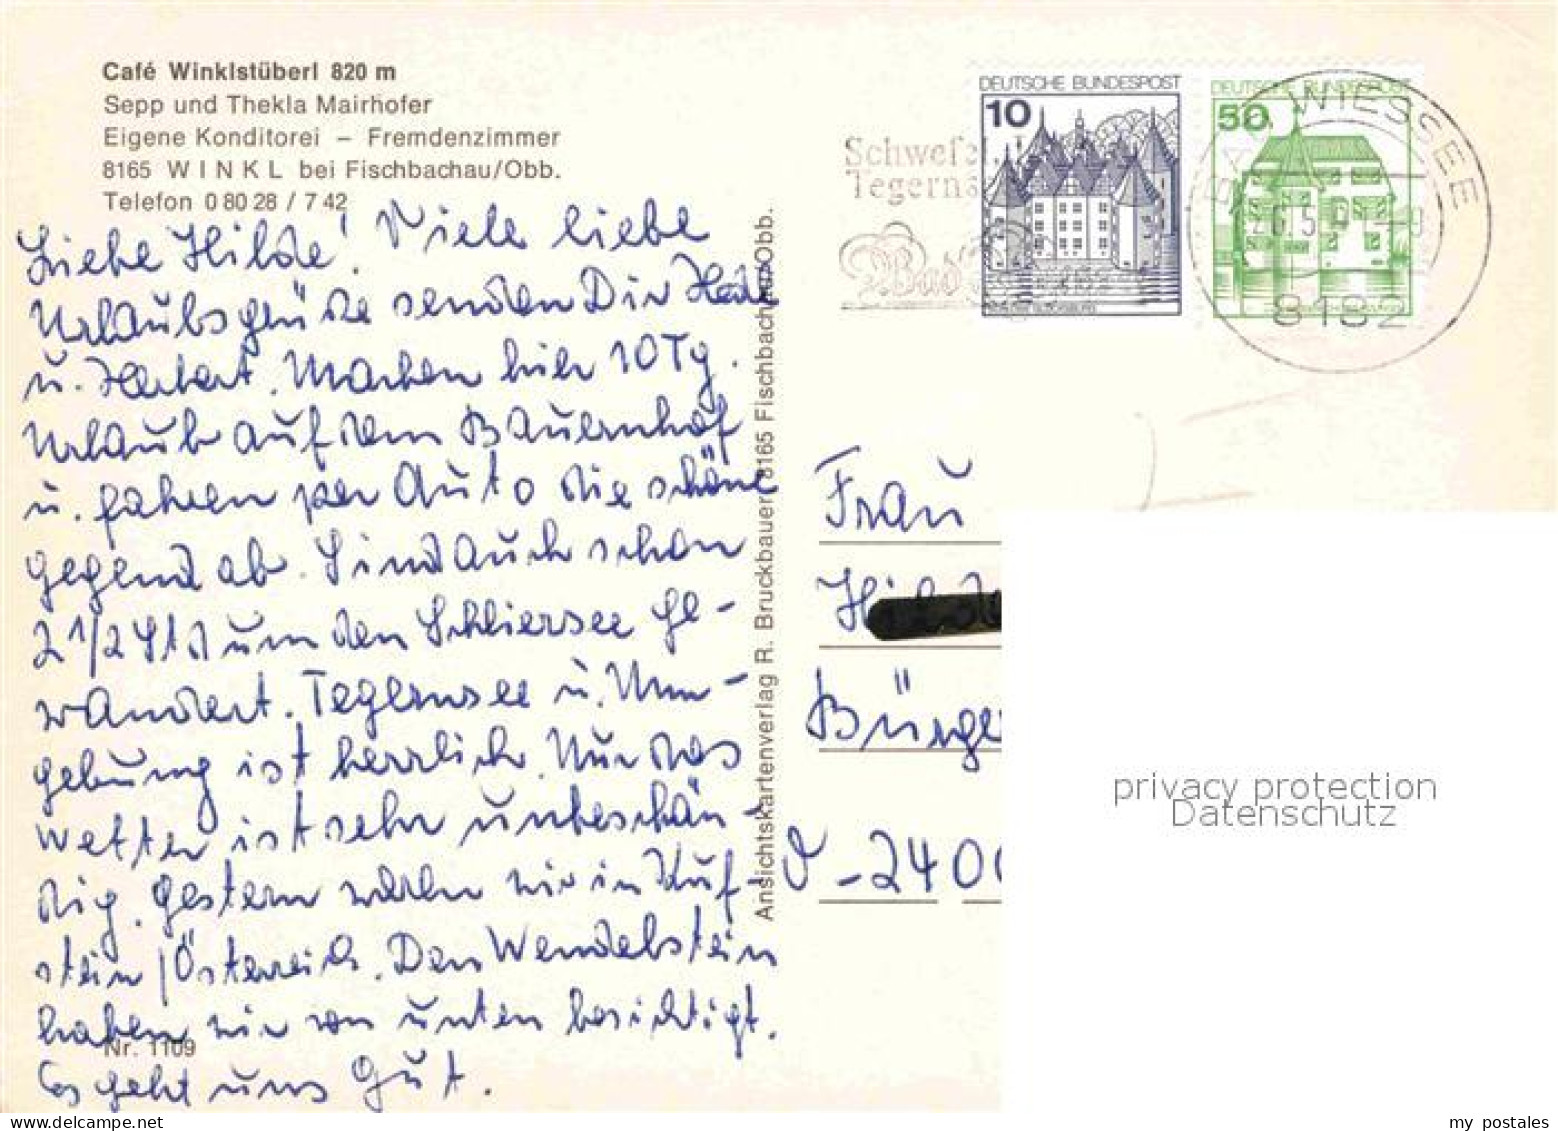 Café Winklstüberl 820 m
Sepp und Thekla Mairhofer
Eigene Konditorei – Fremdenzimmer
8165 WINKL bei Fischbachau/Obb.
Telefon 0 80 28 / 7 42
Liebe Hilde! Viele liebe
Urlaubsgrüße senden Dir
u. Herbert. Machen hier 10 Tg.
Urlaub auf dem Bauernhof
u. fahren per Auto die schöne
Gegend ab. Sind auch schon
2 1/2 Std um den Schliersee ge-
wandert. Tegernsee u. Um-
gebung ist herrlich. Nur das
Wetter ist sehr unbestän-
dig. Gestern waren wir in Kuf-
stein/Österreich. Den Wendelstein
haben wir von unten besichtigt.
Es geht uns gut.
Nr. 1109
Ansichtskartenverlag R. Bruckbauer, 8165 Fischbachau/Obb.
Tegerns
Bad
DEUTSCHE BUNDESPOST
10
SCHLOSS GLÜCKSBURG
DEUTSCHE BUNDESPOST
50
WIESSEE
8182
Frau
Bürge
D-2400
privacy protection
Datenschutz
my postales